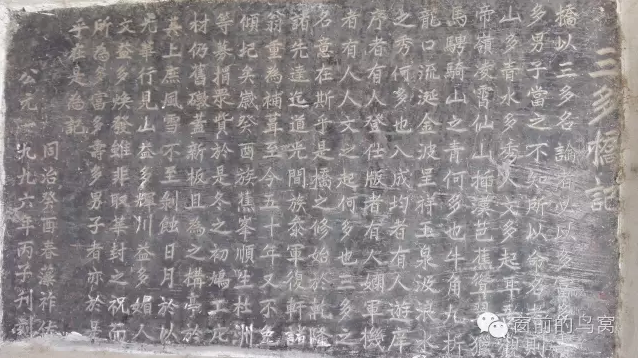 三多橋記
橋以三多名論者必以多富多
多男子當之不知所以命名者則
山多青水多秀人文多起耳
帝嶺凌霄仙山插漢芭蕉
馬騁騎山之青何多也牛角九折
龍口流涎金波呈祥玉泉波浪水
之秀何多也入成均者有人遊庠
序者有人登仕版者有人嫺軍機
者有人人文之起何多也三多之
名意在斯乎是橋之修始於乾隆
諸先達迄道光間族泰軍復軒諸
翁重為補葺至今五十年又不免
傾圮矣歲癸酉族蕉峯順生杜洲
等募捐眾貲於是冬之初鳩工庀
材仍舊礅蓋新板且為之構亭於
其上庶風雪不至剝蝕日月於以
光華行見山益多輝川益多媚人
文益多煥發雖非取華封之祝而
所為多富多壽多男子者亦於是
乎在是為記
同治癸酉春藻祥佐
公元一九九六年丙子刊刻
窗前的鸟窝